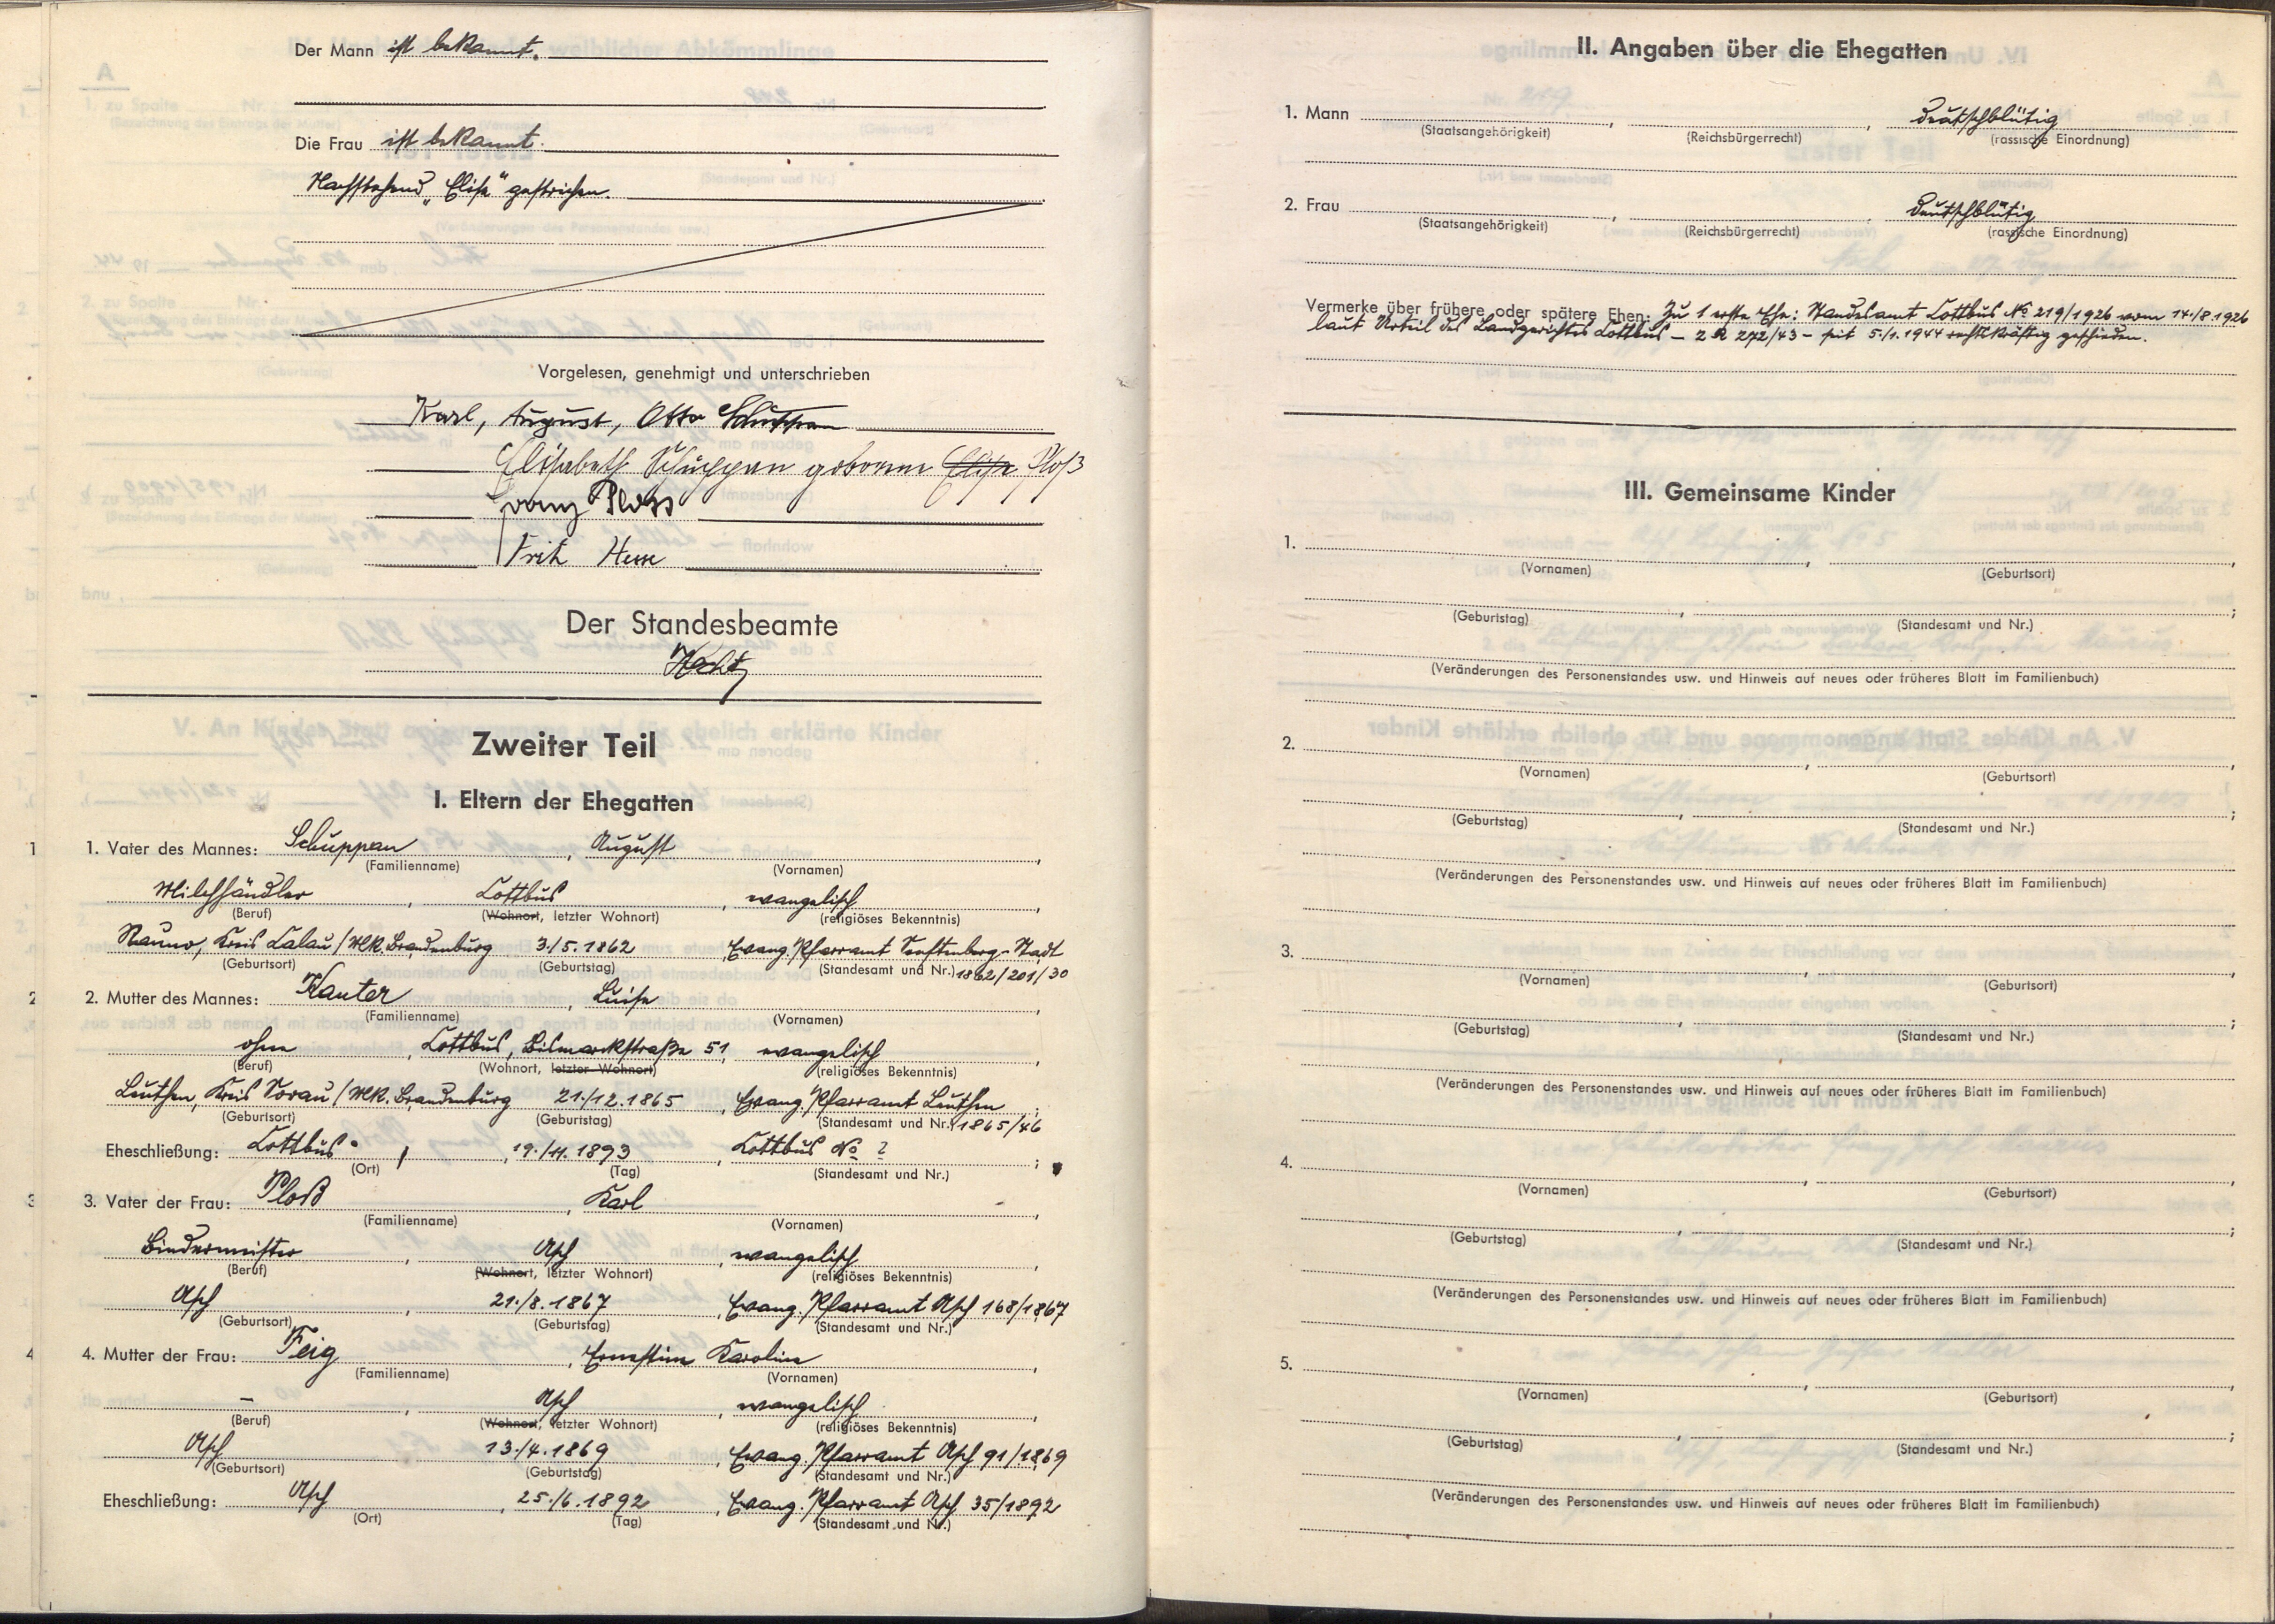 Der Mann ist bekannt.
Die Frau ist bekannt.
Nachstehend „Elise" gestrichen.
Vorgelesen, genehmigt und unterschrieben
Karl, August, Otto Schuppan
Elisabeth Schuppan geborene Elise Ploß
Franz Ploss
Fritz
Der Standesbeamte
Zweiter Teil
I. Eltern der Ehegatten
1. Vater des Mannes: Schuppan, August
(Familienname) (Vornamen)
Milchhändler, Cottbus, evangelisch,
(Beruf) (Wohnort, letzter Wohnort) (religiöses Bekenntnis)
Rauno, Kreis Calau/Mk. Brandenburg 3./5.1862, Evang. Pfarramt Senftenberg-Stadt
(Geburtsort) (Geburtstag) (Standesamt und Nr.) 1862/201/30
2. Mutter des Mannes: Kanter, Luise,
(Familienname) (Vornamen)
ohne, Cottbus, Bismarckstraße 51, evangelisch,
(Beruf) (Wohnort, letzter Wohnort) (religiöses Bekenntnis)
Leuthen, Kreis Sorau/Mk. Brandenburg 21./12.1865, Evang. Pfarramt Leuthen;
(Geburtsort) (Geburtstag) (Standesamt und Nr.) 1865/46
Eheschließung: Cottbus, 19./11.1893, Cottbus No ?;
(Ort) (Tag) (Standesamt und Nr.)
3. Vater der Frau: Ploß, Karl,
(Familienname) (Vornamen)
Bindermeister, Asch, evangelisch,
(Beruf) (Wohnort, letzter Wohnort) (religiöses Bekenntnis)
Asch, 21./8.1867, Evang. Pfarramt Asch 168/1867
(Geburtsort) (Geburtstag) (Standesamt und Nr.)
4. Mutter der Frau: Feig, Ernestine Karoline,
(Familienname) (Vornamen)
–, Asch, evangelisch,
(Beruf) (Wohnort, letzter Wohnort) (religiöses Bekenntnis)
Asch 13./4.1869, Evang. Pfarramt Asch 91/1869
(Geburtsort) (Geburtstag) (Standesamt und Nr.)
Eheschließung: Asch, 25./6.1892, Evang. Pfarramt Asch 35/1892
(Ort) (Tag) (Standesamt und Nr.)
II. Angaben über die Ehegatten
1. Mann , , deutschblütig
(Staatsangehörigkeit) (Reichsbürgerrecht) (rassische Einordnung)
2. Frau , , deutschblütig
(Staatsangehörigkeit) (Reichsbürgerrecht) (rassische Einordnung)
Vermerke über frühere oder spätere Ehen: Zu 1 erste Ehe: Standesamt Cottbus No 219/1926 vom 14./8.1926
laut Urteil des Landgerichtes Cottbus – 2 R 272/43 – seit 5./1.1944 rechtskräftig geschieden.
III. Gemeinsame Kinder
1.
(Vornamen) (Geburtsort)
(Geburtstag) (Standesamt und Nr.)
(Veränderungen des Personenstandes usw. und Hinweis auf neues oder früheres Blatt im Familienbuch)
2.
(Vornamen) (Geburtsort)
(Geburtstag) (Standesamt und Nr.)
(Veränderungen des Personenstandes usw. und Hinweis auf neues oder früheres Blatt im Familienbuch)
3.
(Vornamen) (Geburtsort)
(Geburtstag) (Standesamt und Nr.)
(Veränderungen des Personenstandes usw. und Hinweis auf neues oder früheres Blatt im Familienbuch)
4.
(Vornamen) (Geburtsort)
(Geburtstag) (Standesamt und Nr.)
(Veränderungen des Personenstandes usw. und Hinweis auf neues oder früheres Blatt im Familienbuch)
5.
(Vornamen) (Geburtsort)
(Geburtstag) (Standesamt und Nr.)
(Veränderungen des Personenstandes usw. und Hinweis auf neues oder früheres Blatt im Familienbuch)